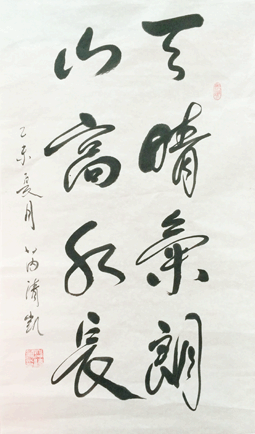 天晴氣朗
山高水長
乙未夏月 凱